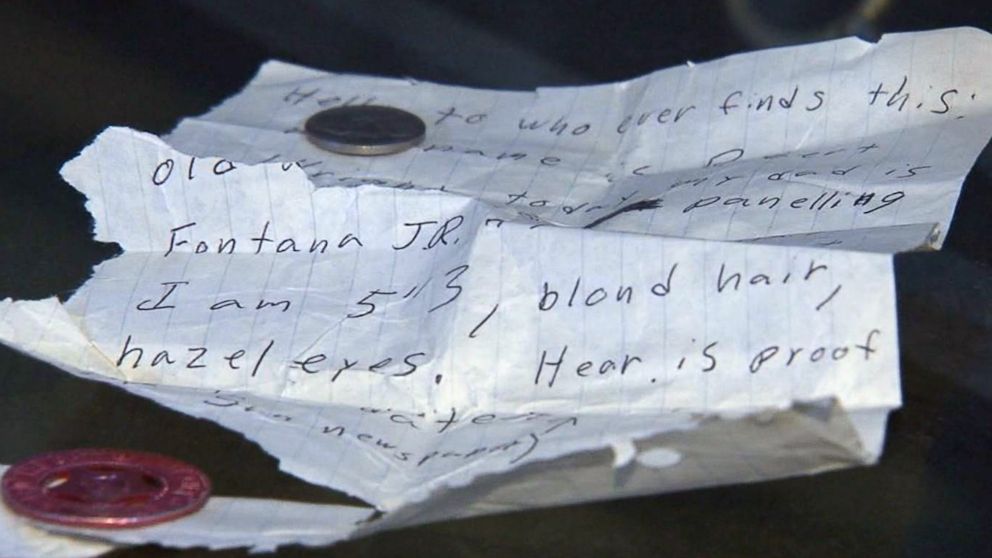 to who ever finds this:
name is
old my dad is
today panelling
Fontana JR.
I am 5"3, blond hair,
hazel eyes. Hear. is proof
newspaper)